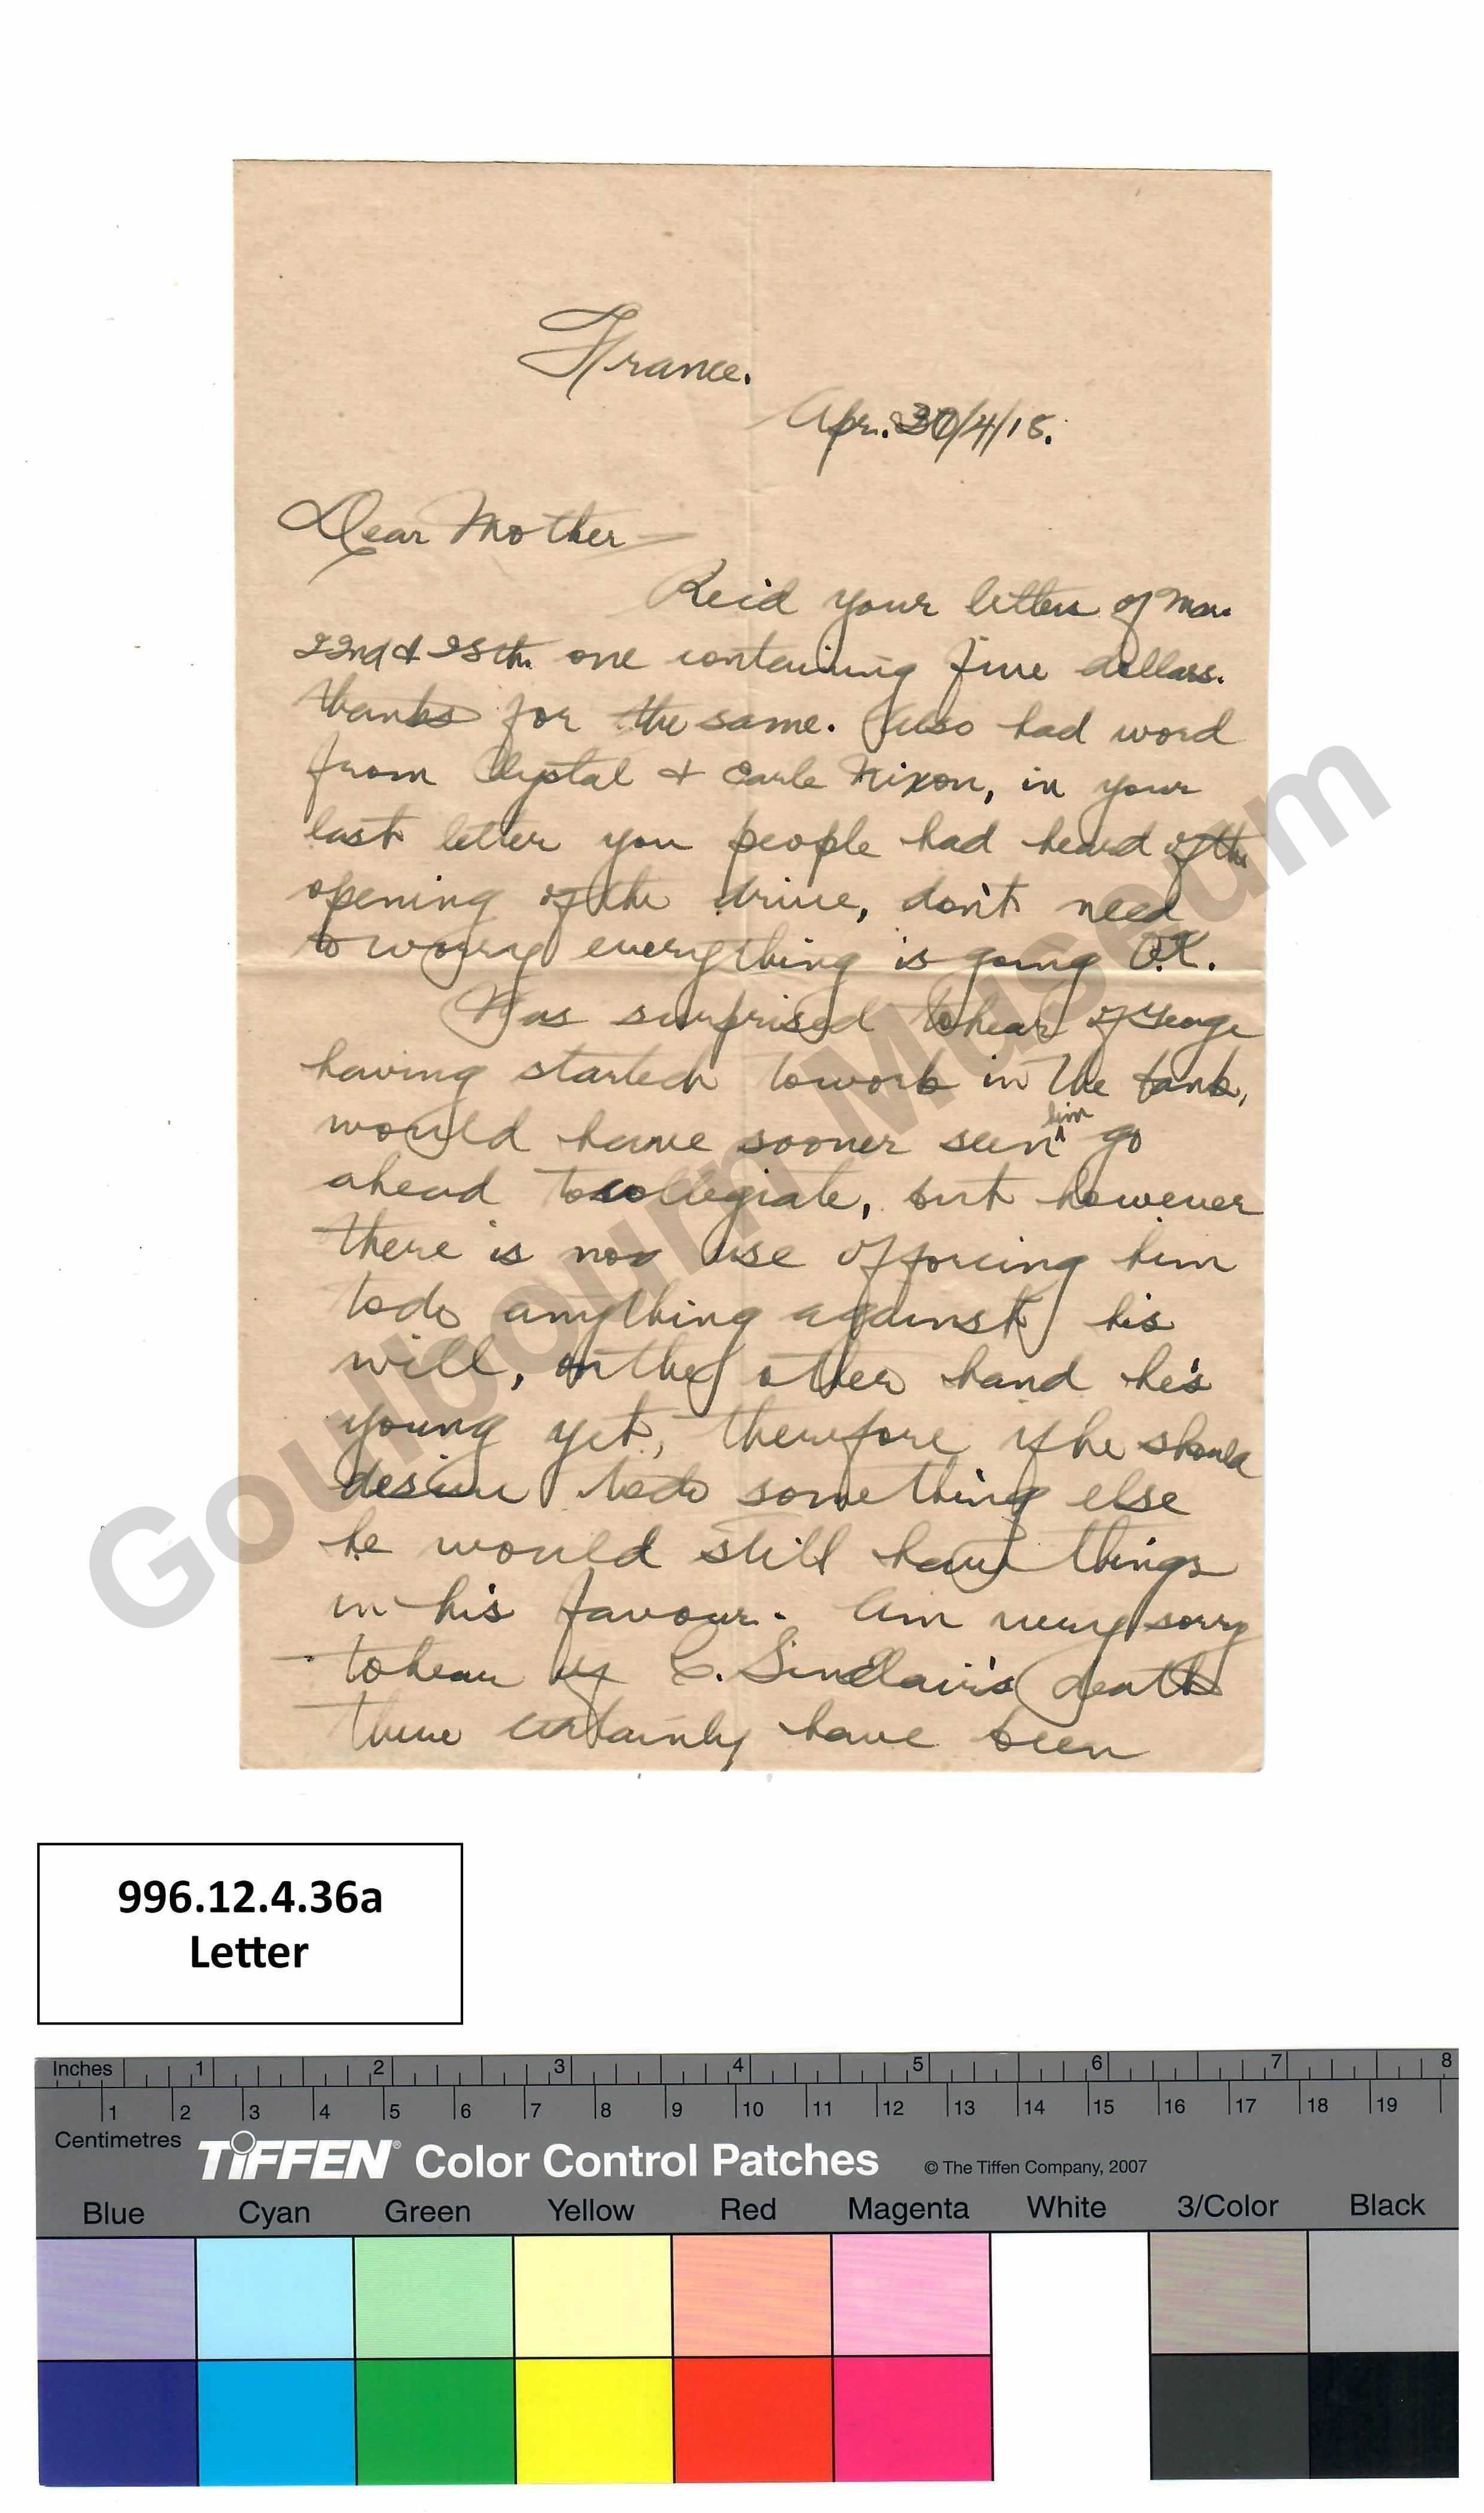 France.
Apr. 30/4/18.
Dear Mother—
Rec'd your letters of Mar.
22nd & 25th. one containing five dollars.
thanks for the same. Also had word
from Chrystal & Earle Nixon, in your
last letter you people had heard of the
opening of the drive, don't need
to worry everything is going O.K.
Was surprised to hear of George
having started to work in the bank,
would have sooner seen him go
ahead to collegiate, but however
there is no use of forcing him
to do anything against his
will, on the other hand he's
young yet, therefore if he should
desire to do something else
he would still have things
in his favour. Am very sorry
to hear of C. Sinclair's death
there certainly have been
Goulbourn Museum
996.12.4.36a
Letter
Inches 1 2 3 4 5 6 7 8
1 2 3 4 5 6 7 8 9 10 11 12 13 14 15 16 17 18 19
Centimetres
TIFFEN® Color Control Patches © The Tiffen Company, 2007
Blue Cyan Green Yellow Red Magenta White 3/Color Black